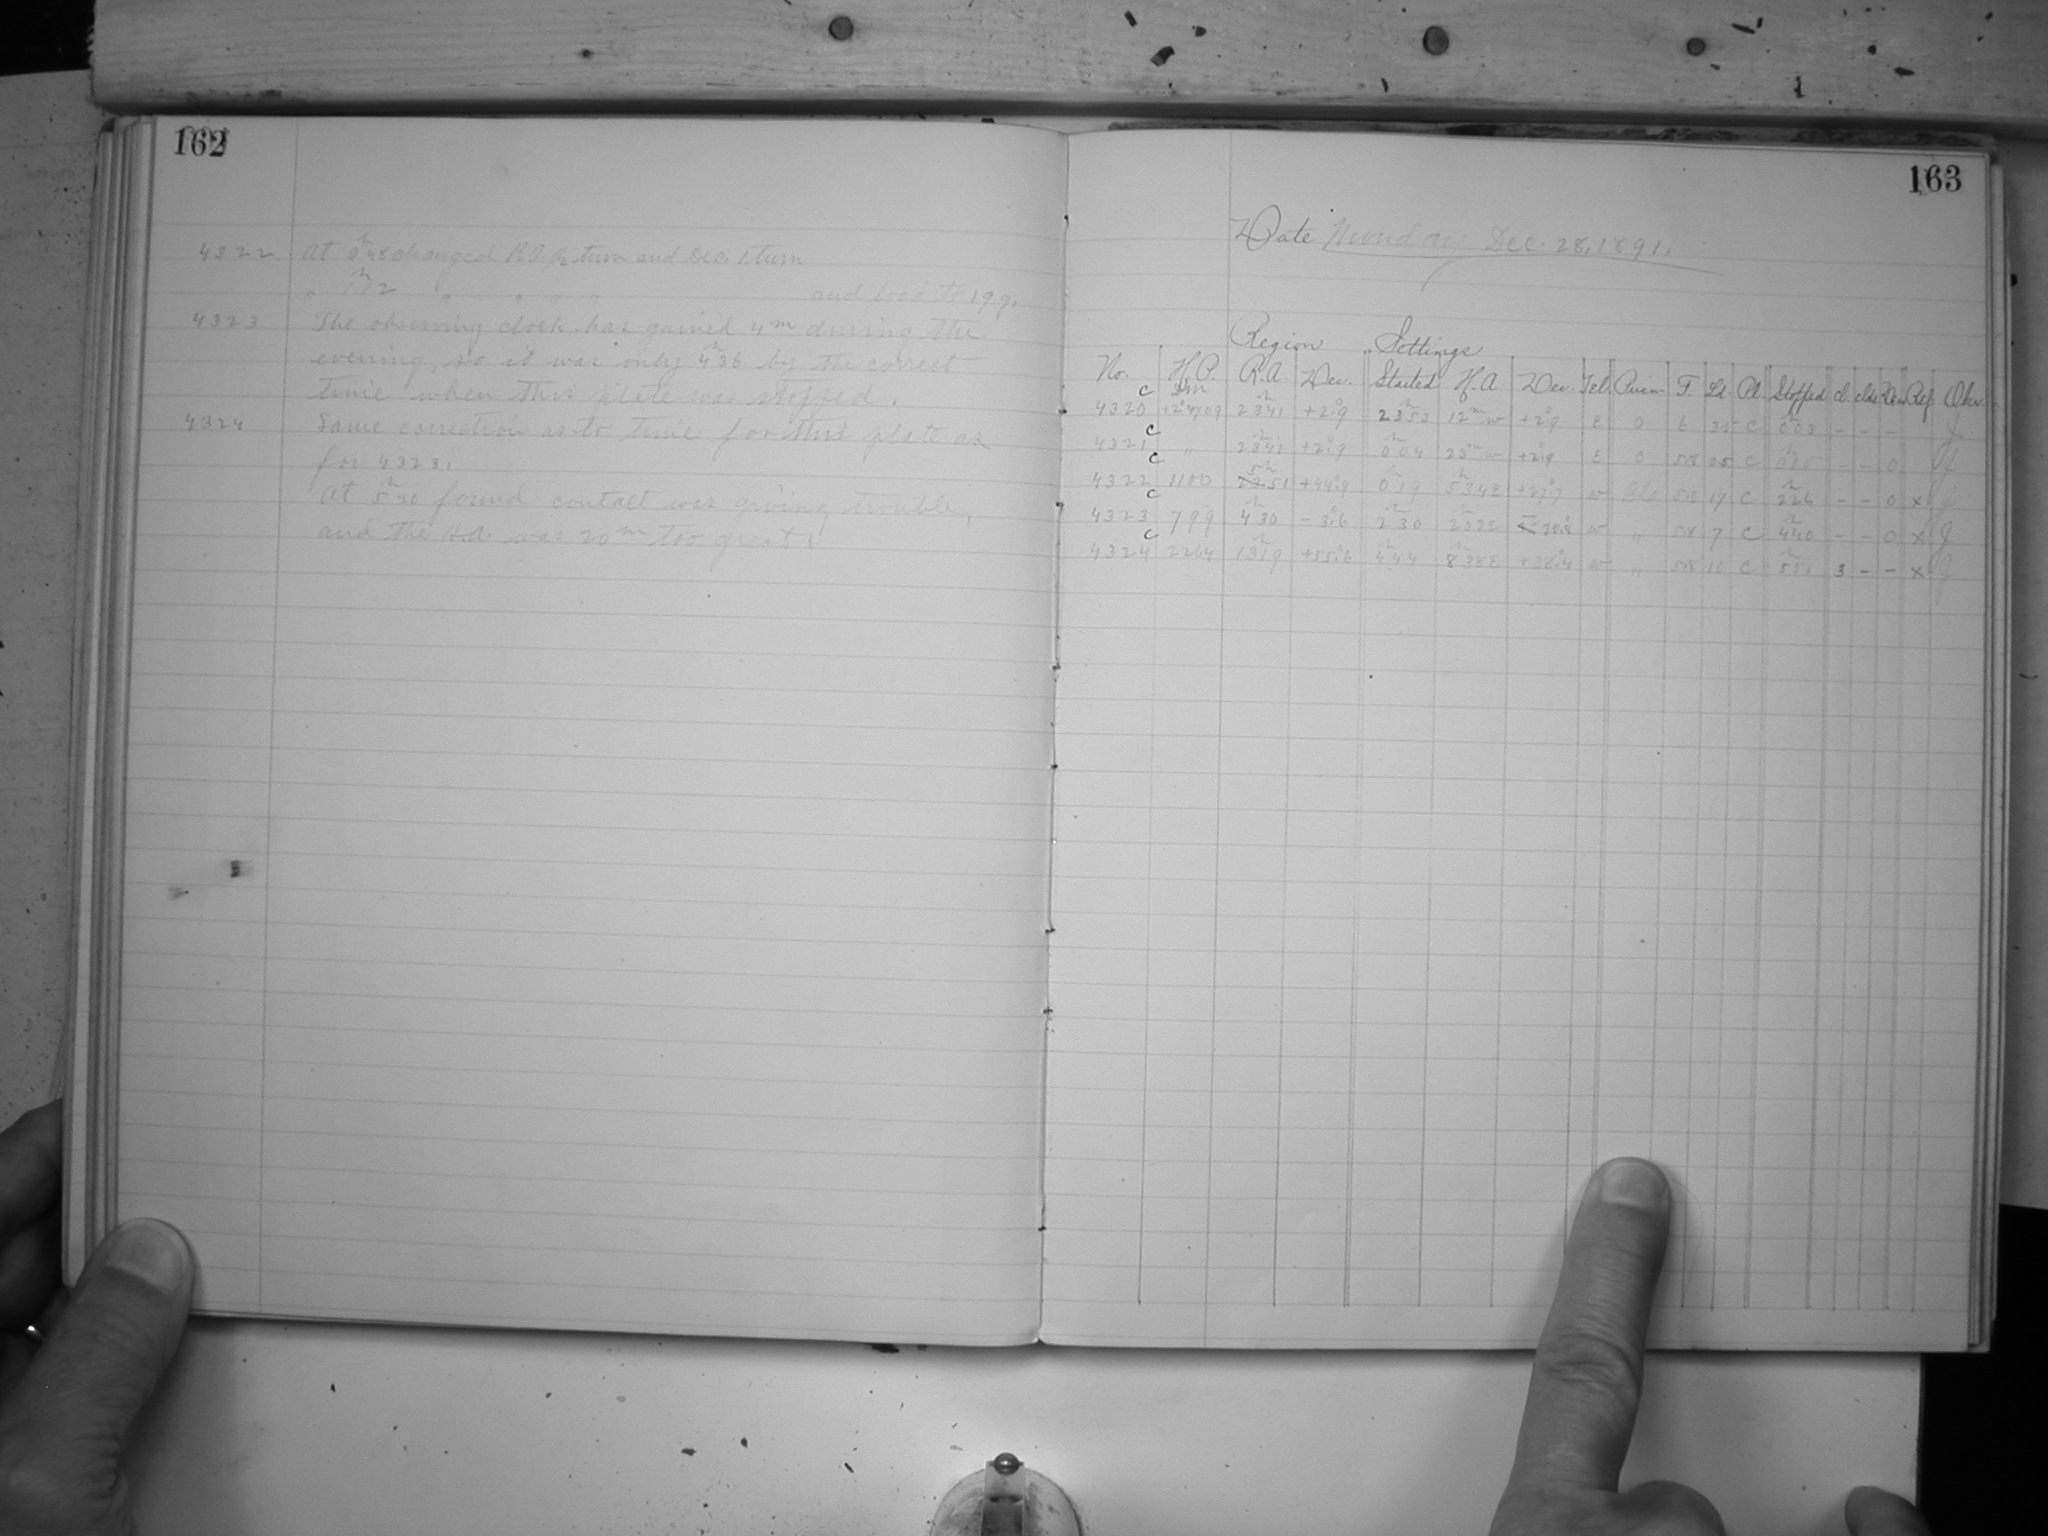 162
4322 At 0h48 changed R.A. ½ turn and Dec. 1 turn
" 1h12 " " " " and lost to 199.
4323 The observing clock has gained 4m during the
evening, so it was only 4h36 by the correct
time when this plate was stopped.
4324 Same correction as to time for this plate as
for 4323.
At 5h40 found contact was giving trouble,
and the H.A. was 20m too great.
163
Date Monday Dec. 28, 1891.
Region Settings
No. H.P. R.A. Dec. Started H.A Dec. Tel. Prism T Ld. Pl. Stopped cl. Ref Obs.
C 4320 DM +2°4709 23h41 +2°.9 23h53 12m w +2°.9 E 0 6 35 C 0h03 - - - J
C 4321 " 23h41 +2°.9 0h04 23m w +2°.9 E 0 58 25 C - - 0 J
C 4322 1100 5h51 +44°.9 0h19 5h34E w 58 17 C 2h26 - - 0 x J
C 4323 799 4h30 -3°.6 2h30 2h02E w " 58 7 C 4h40 - - 0 x J
C 4324 2264 13h19 +55°.6 4h44 8h38E +38°.4 w " 58 C 5h51 3 - - x J